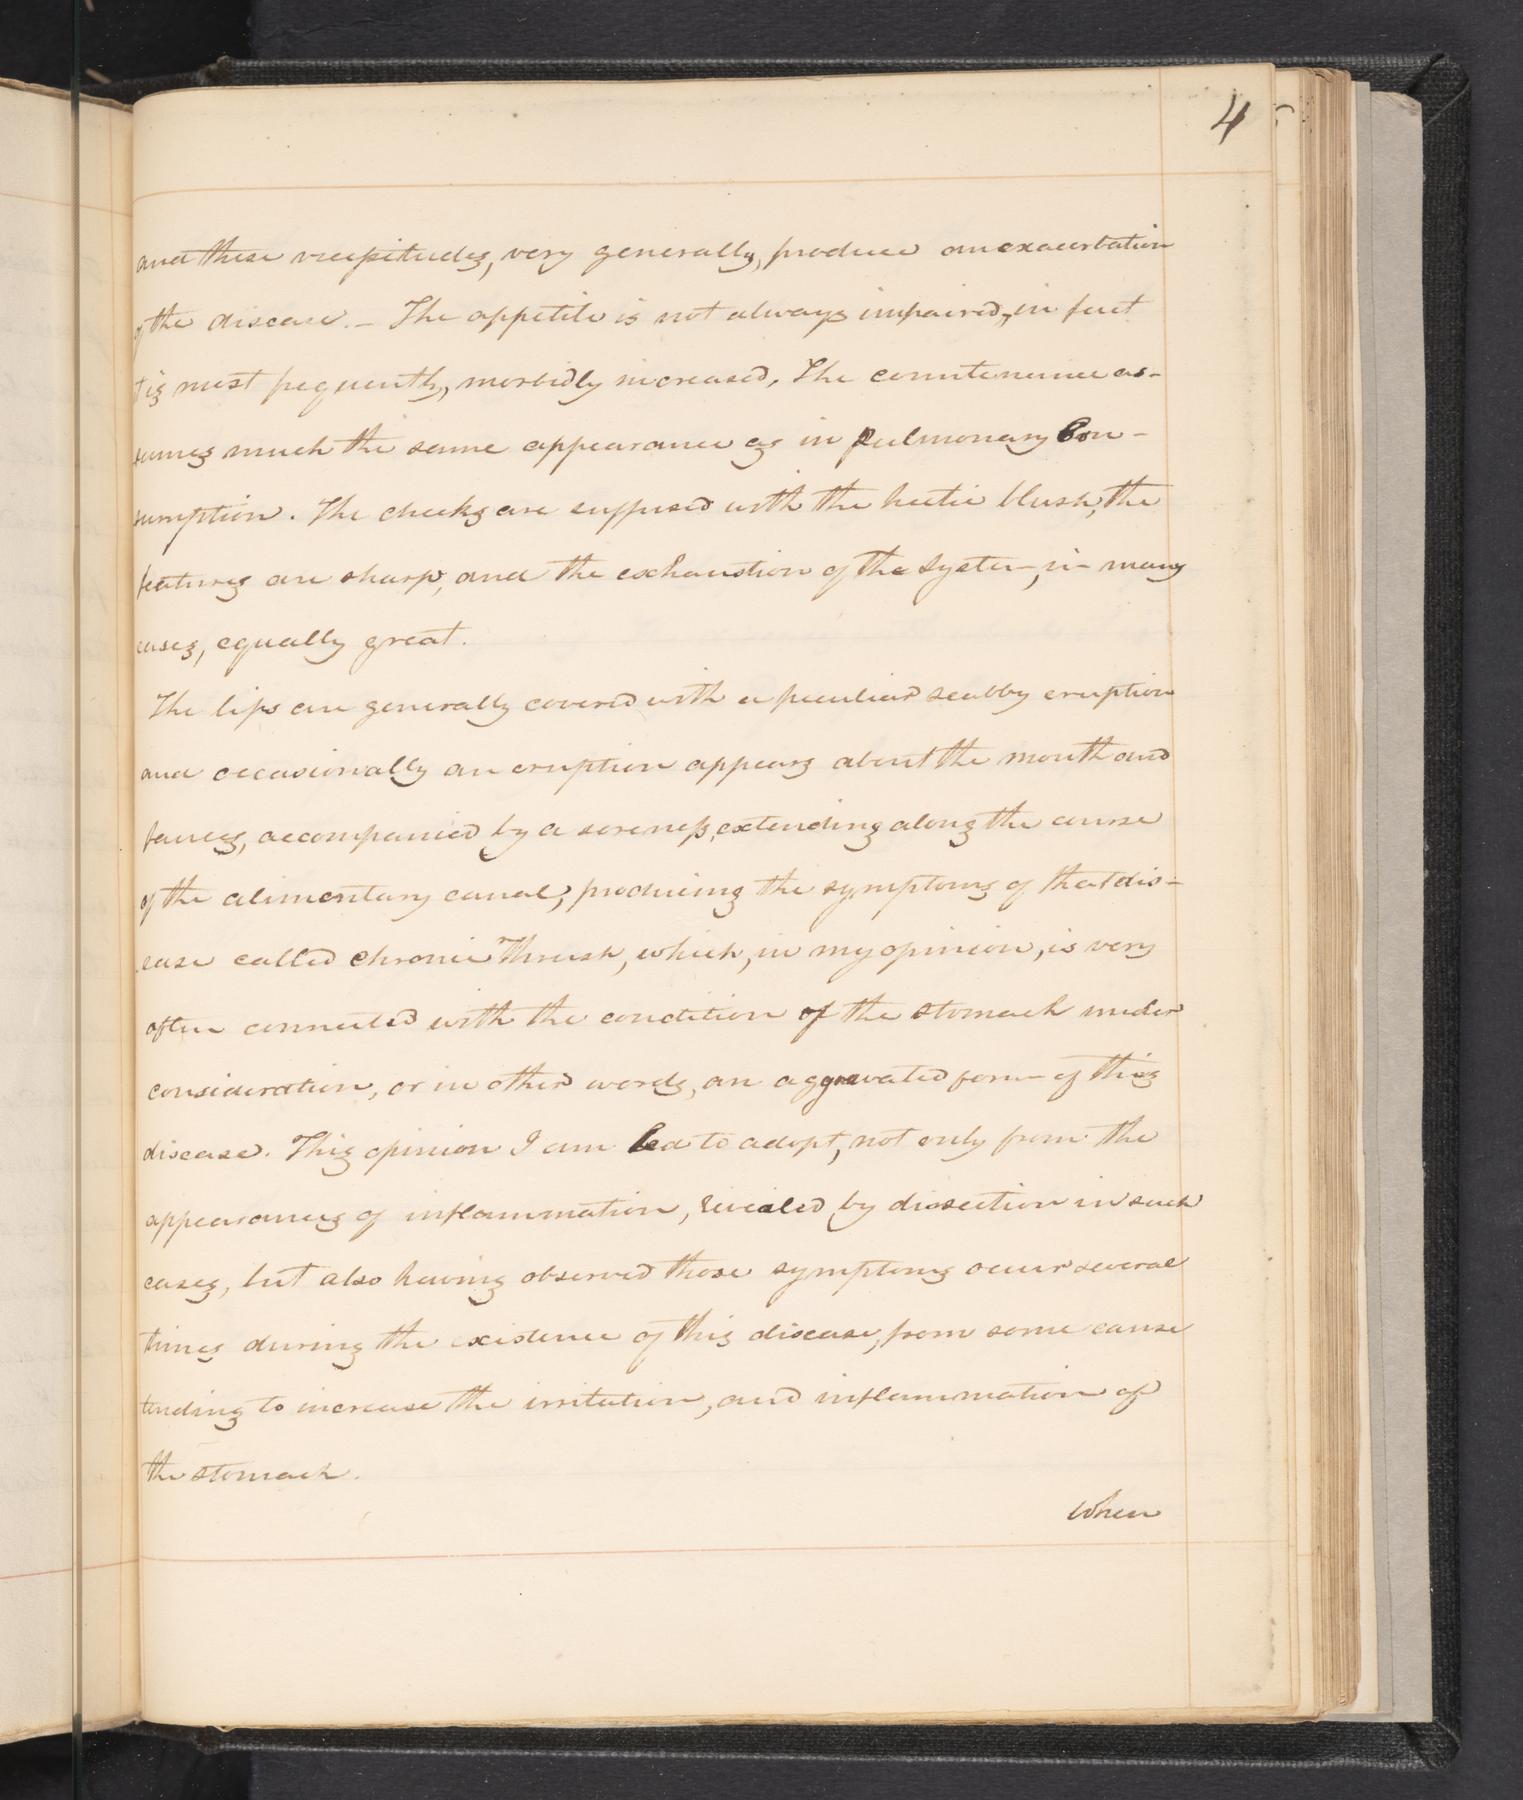 4
and these vicissitudes, very generally, produce an exacerbation
of the disease. – The appetite is not always impaired, in fact
tis most frequently, morbidly increased. The countenance as-
sumes much the same appearance as in Pulmonary Con-
sumption. The cheeks are suffused with the hectic blush, the
features are sharp, and the exhaustion of the system, in many
cases, equally great.
The lips are generally covered with a peculiar scabby eruption
and occasionally an eruption appears about the mouth and
fauces, accompanied by a soreness, extending along the course
of the alimentary canal, producing the symptoms of that dis-
ease called chronic Thrush, which, in my opinion, is very
often connected with the condition of the stomach under
consideration, or in other words, an aggravated form of this
disease. This opinion I am led to adopt, not only from the
appearances of inflammation, revealed by dissection in such
cases, but also having observed those symptoms occur several
times during the existence of this disease, from some cause
tending to increase the irritation, and inflammation of
the stomach.
When